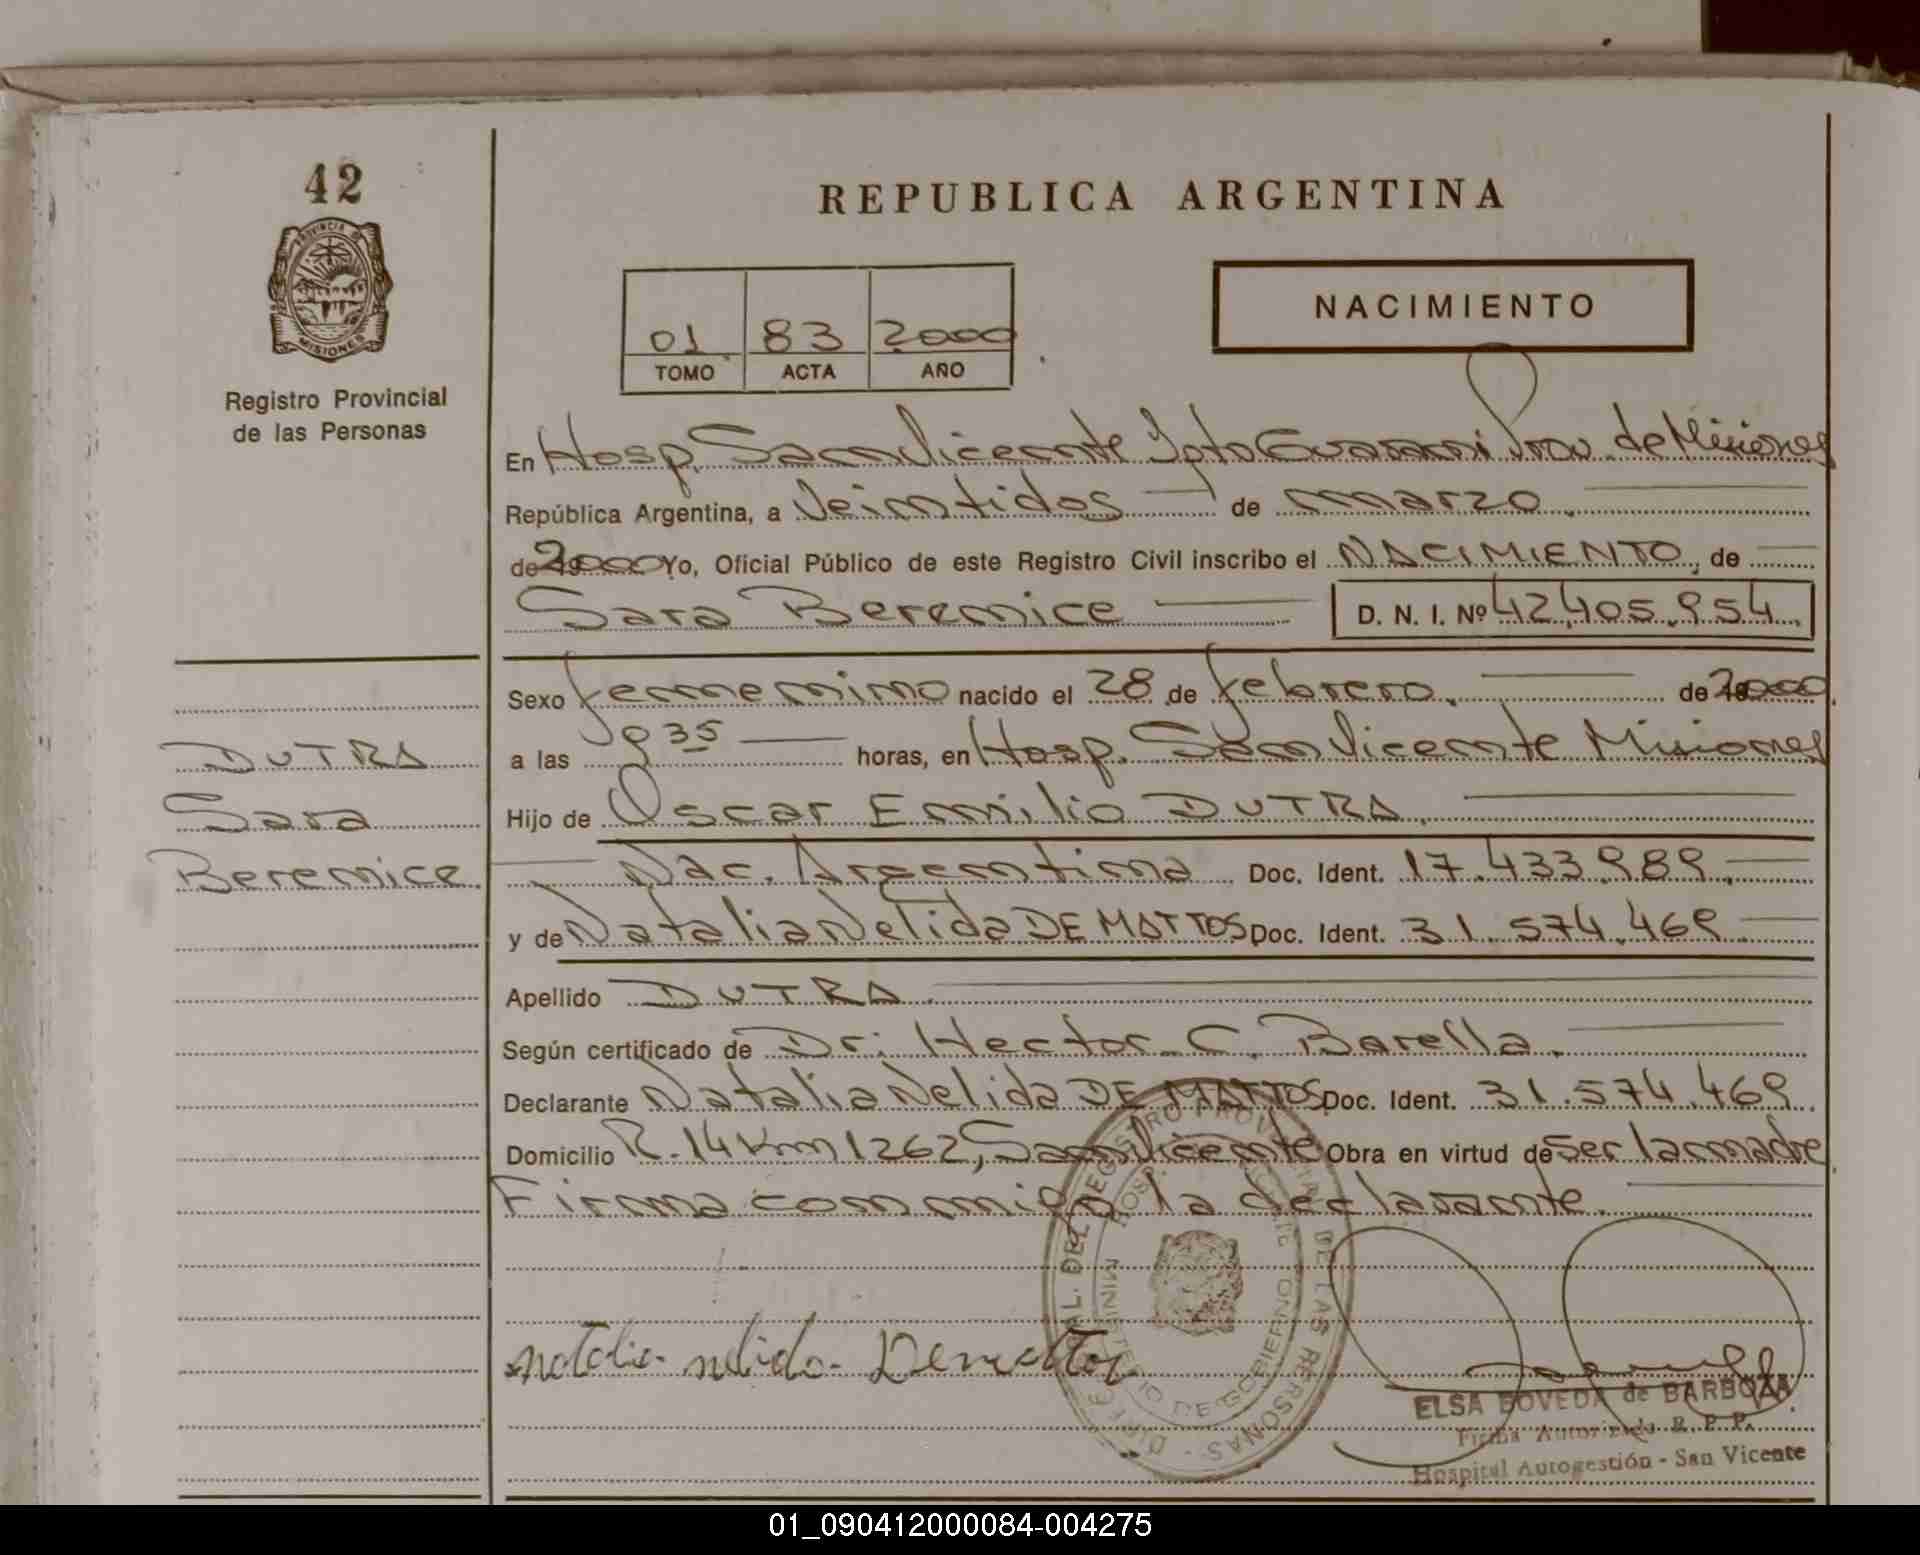 42
PROVINCIA DE
MISIONES
Registro Provincial
de las Personas
REPUBLICA ARGENTINA
01 83 2000
TOMO ACTA AÑO
NACIMIENTO
En Hosp. San Vicente Dpto Guarani Prov. de Misiones
República Argentina, a Veintidos de marzo.
de 2000 Yo, Oficial Público de este Registro Civil inscribo el NACIMIENTO, de
Sara Berenice D. N. I. Nº 42.405.954.
Sexo femenino nacido el 28 de febrero. de 2000.
a las 9 35 horas, en Hosp. San Vicente Misiones
Hijo de Oscar Emilio DUTRA.
Nac. Argentina Doc. Ident. 17.433.989.
y de Natalia Nelida DE MATTOS Doc. Ident. 31.574.469
Apellido DUTRA.
Según certificado de Dr: Hector C. Barella.
Declarante Natalia Nelida DE MATTOS Doc. Ident. 31.574.469
Domicilio R.14 Km 1262, San Vicente Obra en virtud de ser la madre.
Firma conmigo la declarante.
DUTRA
Sara
Berenice.
natalia nelida Demattos
DEL REGISTRO PROVINCIAL DE LAS PERSONAS
HOSP.
MINISTERIO DE GOBIERNO
ELSA BOVEDA de BARBOZA
Firma Autorizada R. P. P.
Hospital Autogestión - San Vicente
01_090412000084-004275